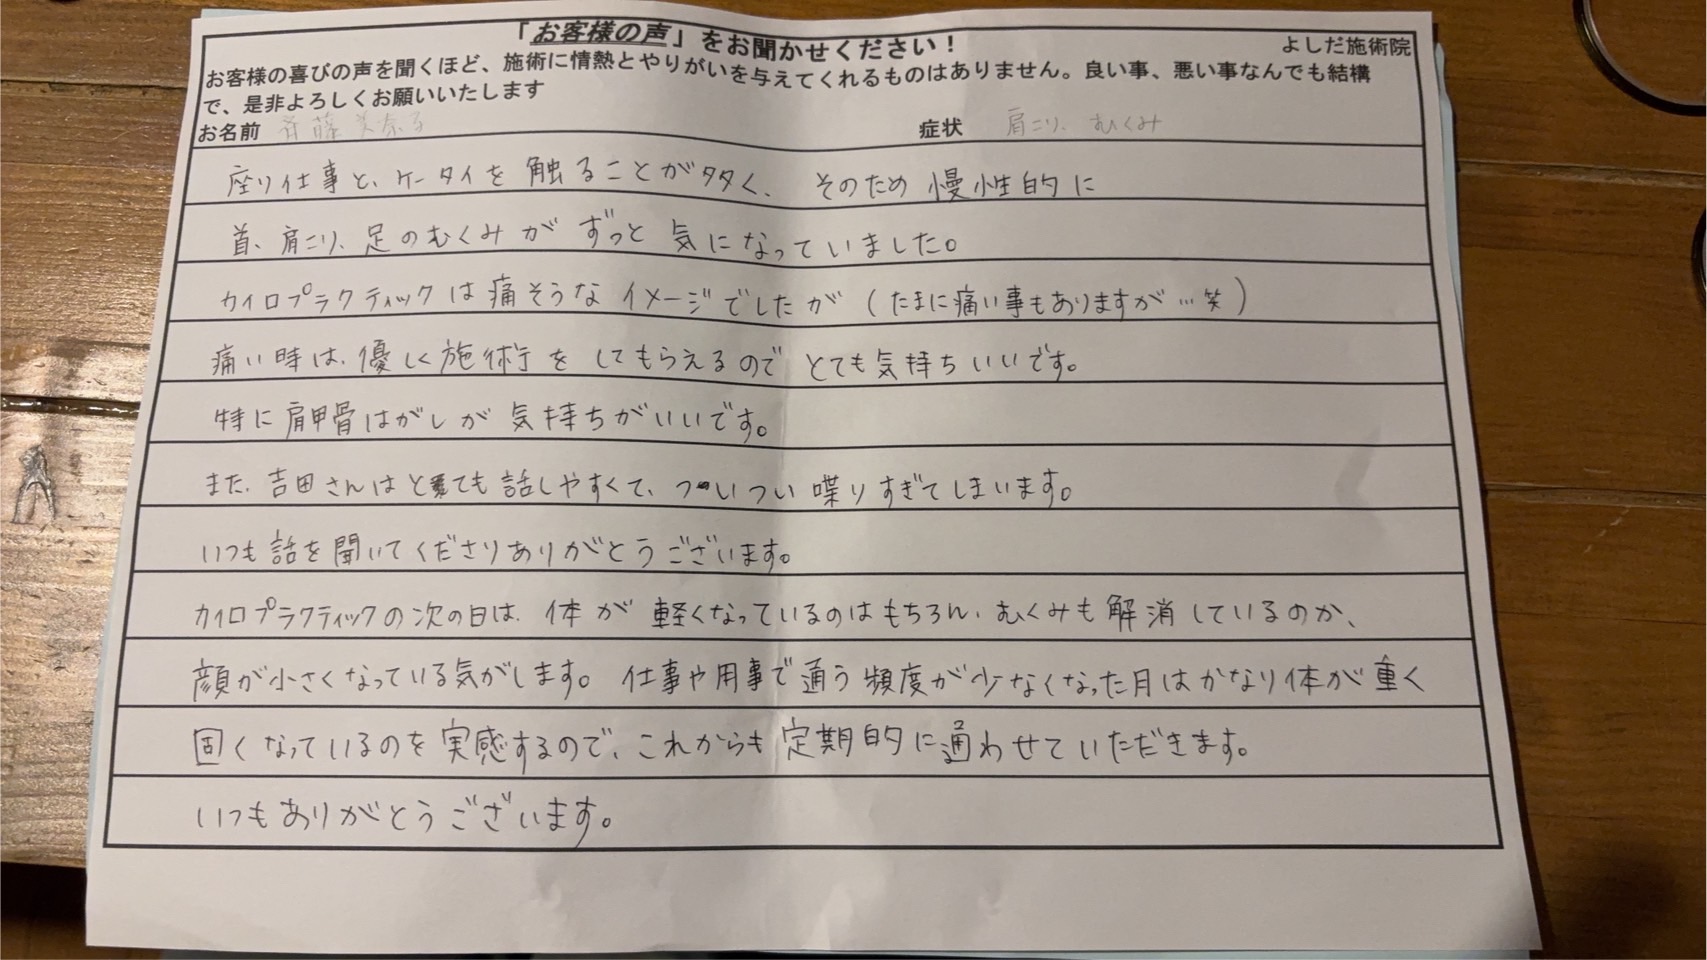 「お客様の声」をお聞かせください！
よしだ施術院
お客様の喜びの声を聞くほど、施術に情熱とやりがいを与えてくれるものはありません。良い事、悪い事なんでも結構
で、是非よろしくお願いいたします
お名前 斉藤美奈子 症状 肩こり、むくみ
座り仕事と、ケータイを触ることが多く、そのため慢性的に
首、肩こり、足のむくみがずっと気になっていました。
カイロプラクティックは痛そうなイメージでしたが（たまに痛い事もありますが…笑）
痛い時は、優しく施術をしてもらえるのでとても気持ちいいです。
特に肩甲骨はがしが気持ちがいいです。
また、吉田さんはとても話しやすくて、ついつい喋りすぎてしまいます。
いつも話を聞いてくださりありがとうございます。
カイロプラクティックの次の日は、体が軽くなっているのはもちろん、むくみも解消しているのか、
顔が小さくなっている気がします。仕事や用事で通う頻度が少なくなった月はかなり体が重く
固くなっているのを実感するので、これからも定期的に通わせていただきます。
いつもありがとうございます。